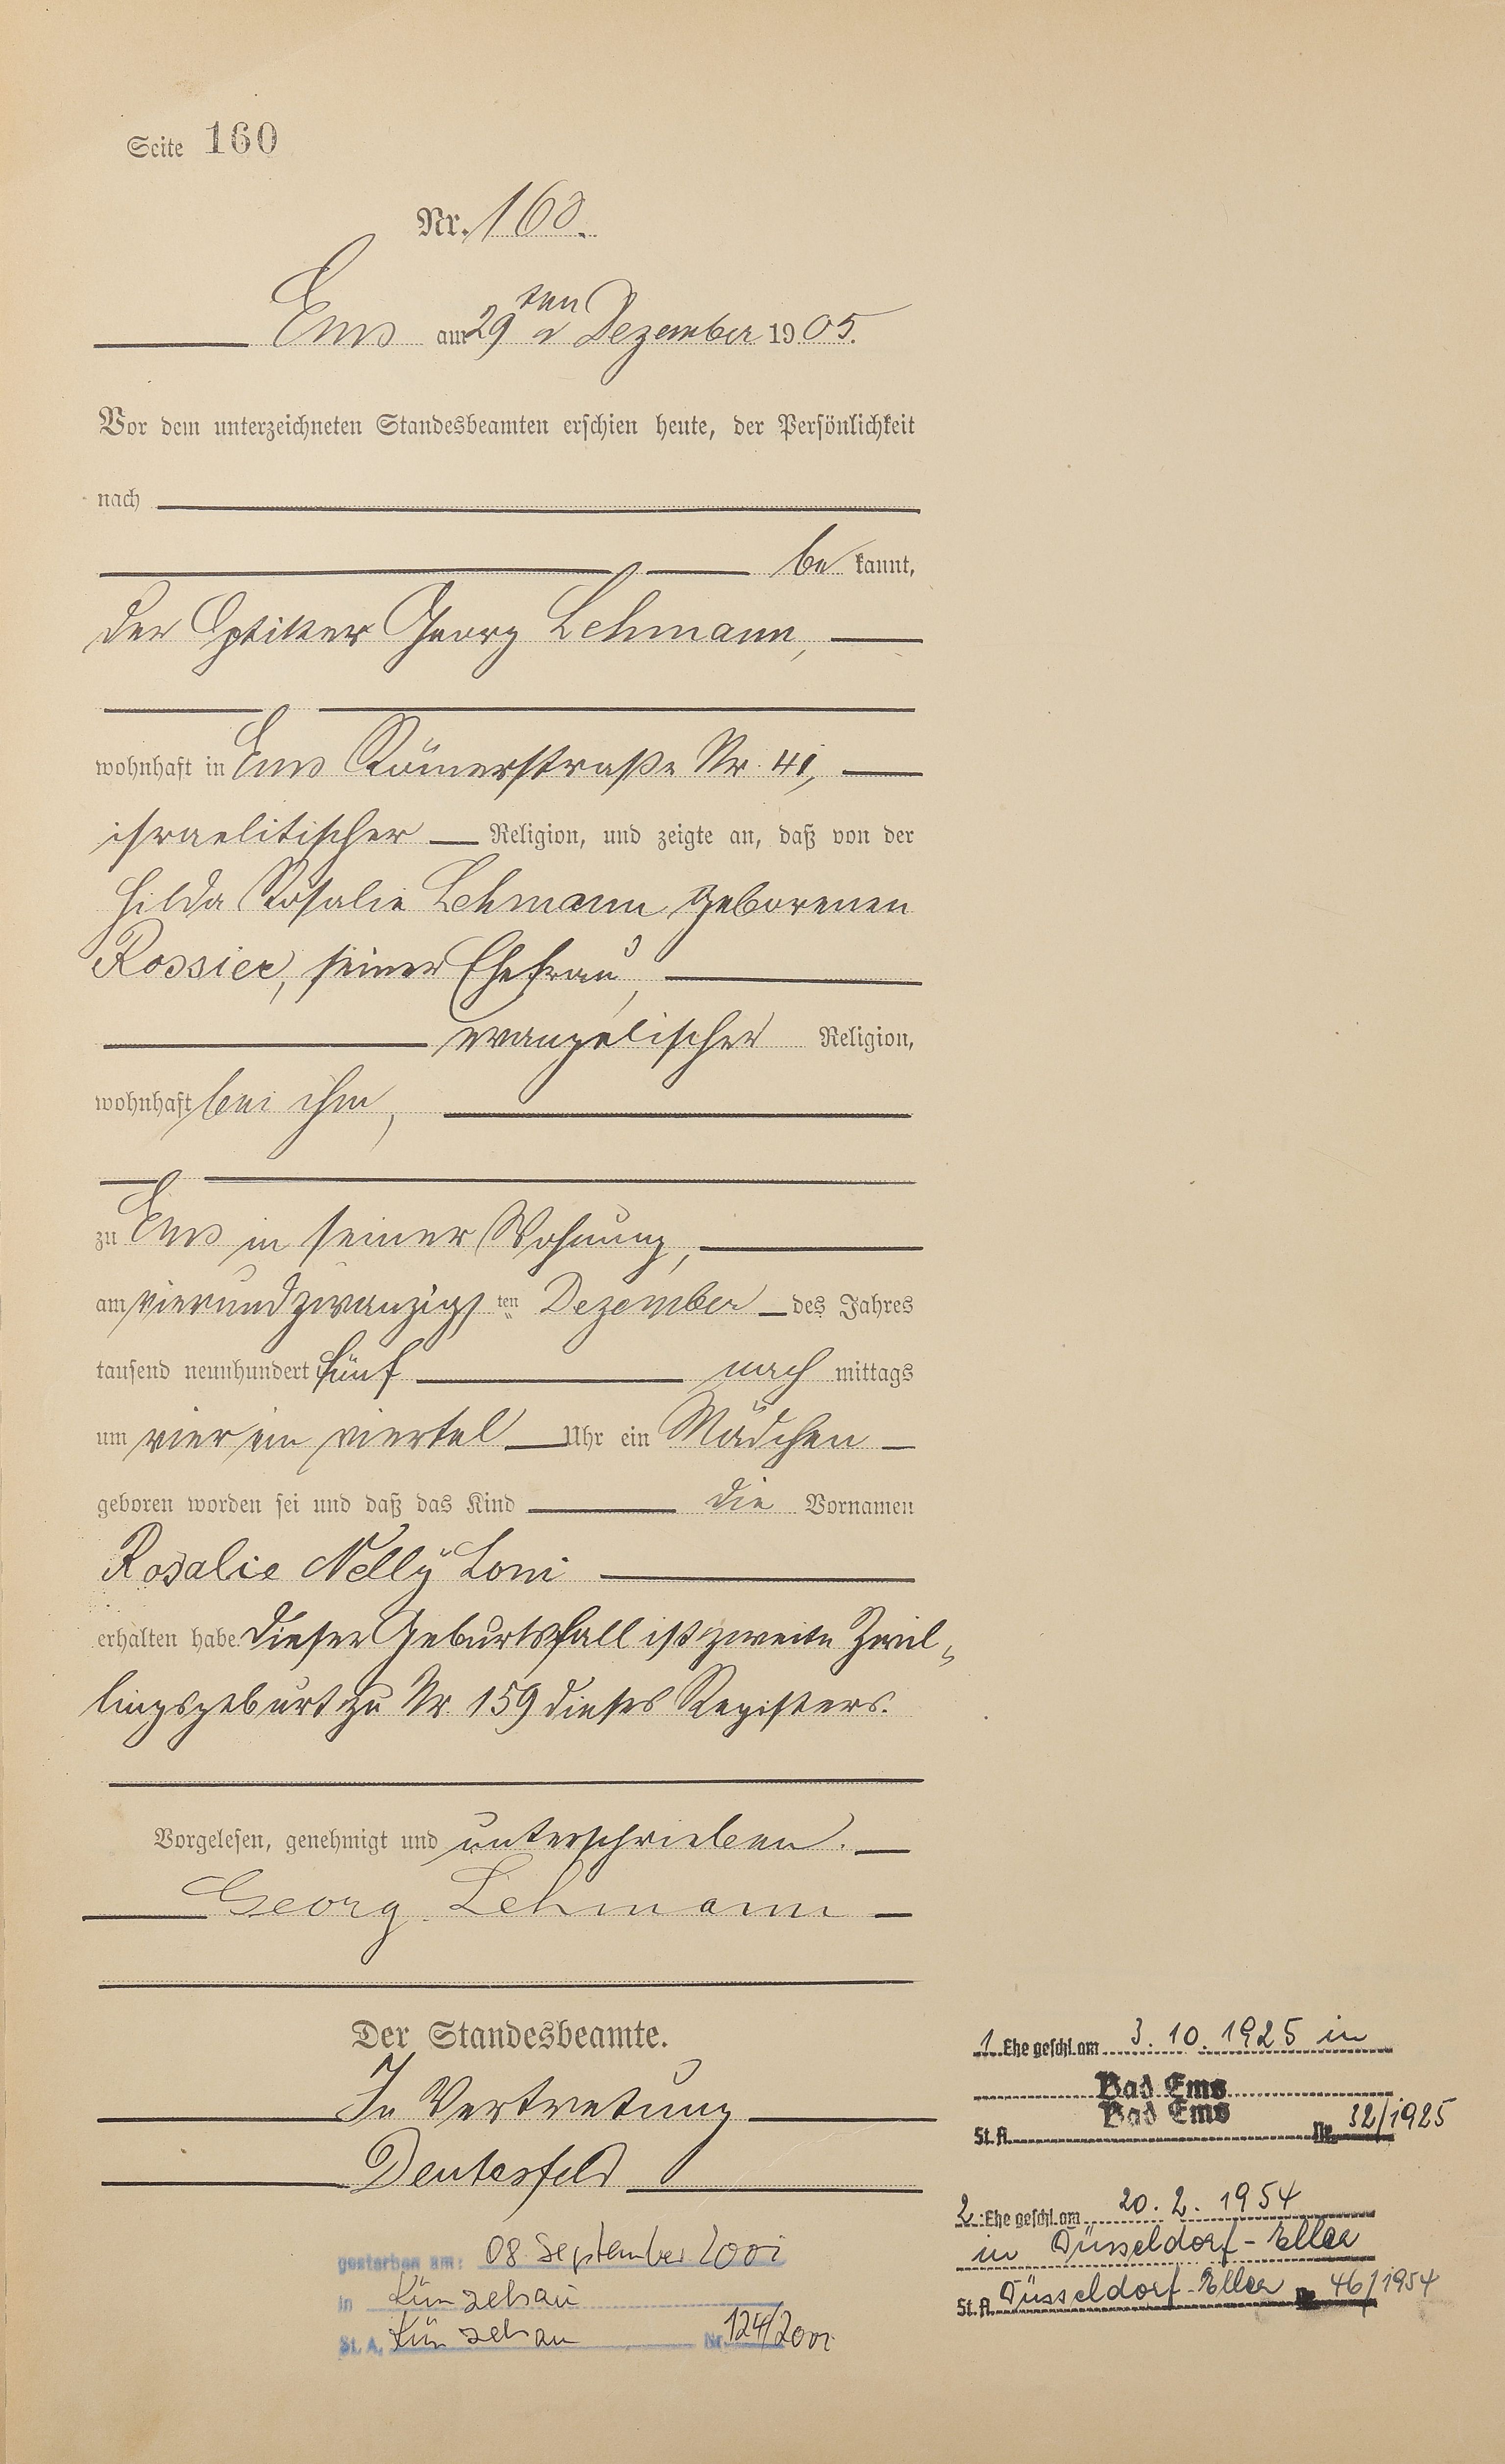 Seite 160
Nr. 160.
Ems am 29ten Dezember 1905.
Vor dem unterzeichneten Standesbeamten erschien heute, der Persönlichkeit
nach
be kannt,
der Optiker Georg Lehmann,
wohnhaft in Ems Römerstraße Nr. 41,
israelitischer Religion, und zeigte an, daß von der
Hilda Rosalie Lehmann geborenen
Rossier, seiner Ehefrau,
evangelischer Religion,
wohnhaft bei ihm,
zu Ems in seiner Wohnung,
am vierundzwanzigs ten Dezember des Jahres
tausend neunhundert fünf nach mittags
um vier ein viertel Uhr ein Mädchen
geboren worden sei und daß das Kind die Vornamen
Rosalie Nelly Loni
erhalten habe. Dieser Geburtsfall ist zweite Zwil-
lingsgeburt zu Nr. 159 dieses Registers.
Vorgelesen, genehmigt und unterschrieben.
Georg Lehmann
Der Standesbeamte.
In Vertretung
Deutesfeld
1. Ehe geschl. am 3. 10. 1925 in
Bad Ems
Bad Ems
St. A. Nr. 32/1925
2. Ehe geschl. am 20. 2. 1954
in Düsseldorf-Eller
St. A. Düsseldorf-Eller Nr. 46/1954
gestorben am: 08. September 2001
in Künzelsau
St. A. Künzelsau Nr. 124/2001